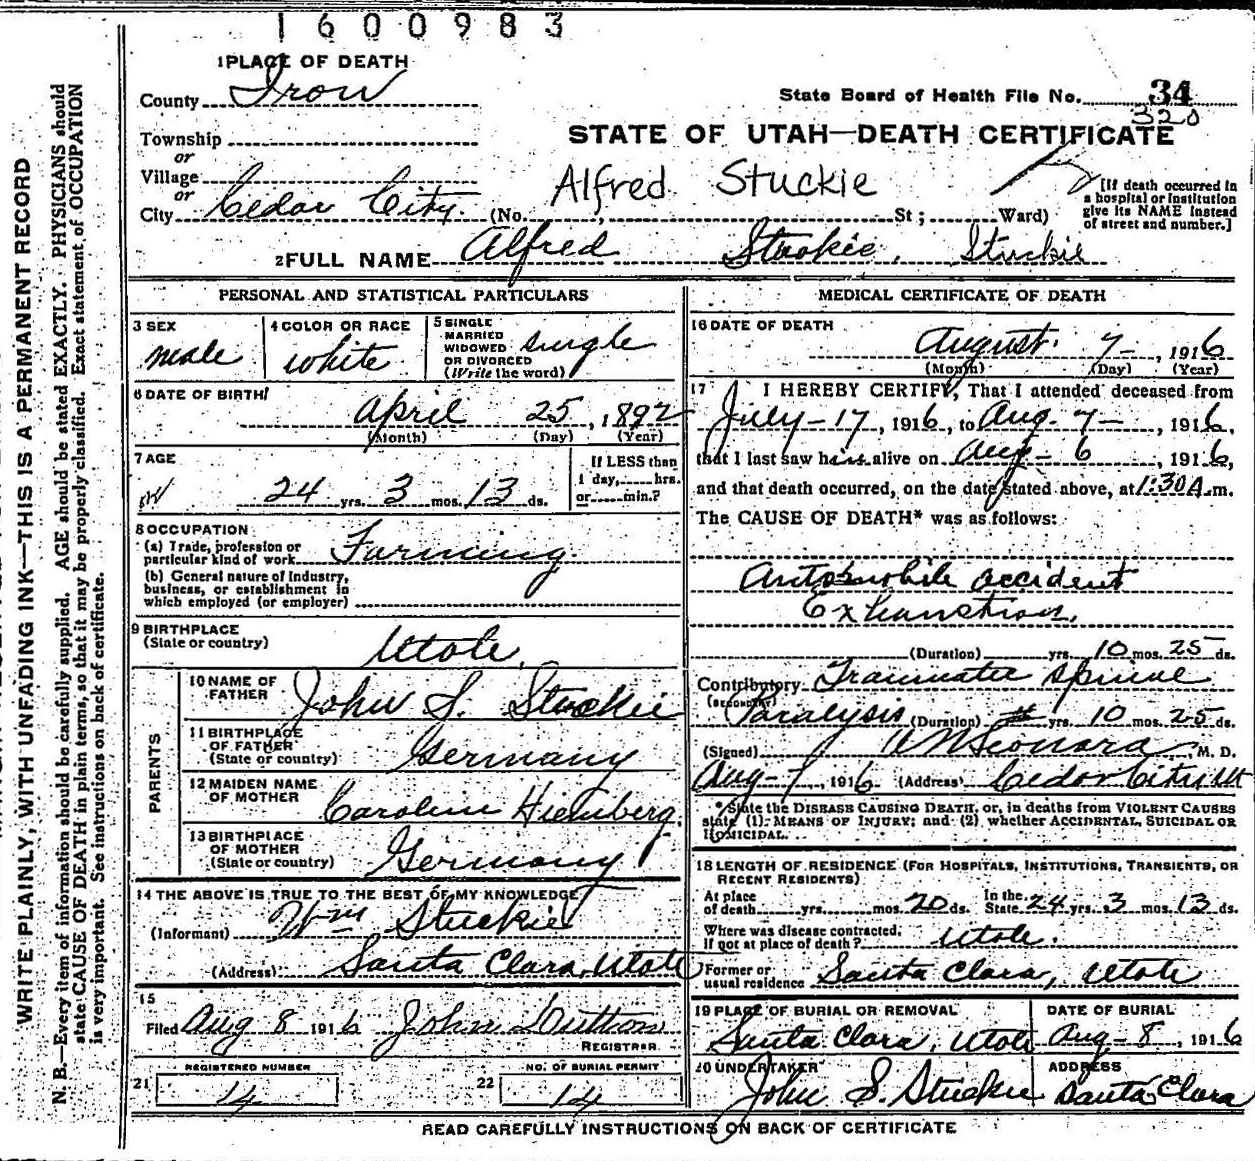 1600983
1 PLACE OF DEATH
County Iron
State Board of Health File No. 34
320
Township
or
Village
or
City Cedar City (No. St; Ward)
STATE OF UTAH—DEATH CERTIFICATE
Alfred Stuckie
[If death occurred in a hospital or institution give its NAME instead of street and number.]
2 FULL NAME Alfred Stuckie, Stuckie
PERSONAL AND STATISTICAL PARTICULARS
3 SEX male
4 COLOR OR RACE white
5 SINGLE MARRIED WIDOWED OR DIVORCED (Write the word) single
6 DATE OF BIRTH
April 25, 1892
(Month) (Day) (Year)
7 AGE
24 yrs. 3 mos. 13 ds.
If LESS than 1 day, hrs. or min.?
8 OCCUPATION
(a) Trade, profession or particular kind of work Farming
(b) General nature of Industry, business, or establishment in which employed (or employer)
9 BIRTHPLACE
(State or country) Utah
10 NAME OF FATHER John S. Stuckie
PARENTS
11 BIRTHPLACE OF FATHER (State or country) Germany
12 MAIDEN NAME OF MOTHER Caroline
13 BIRTHPLACE OF MOTHER (State or country) Germany
14 THE ABOVE IS TRUE TO THE BEST OF MY KNOWLEDGE
(Informant) Wm Stuckie
(Address) Santa Clara, Utah
15
Filed Aug 8 1916 John
REGISTRAR
21 REGISTERED NUMBER 14
22 NO. OF BURIAL PERMIT 14
MEDICAL CERTIFICATE OF DEATH
16 DATE OF DEATH
August 7 — , 1916
(Month) (Day) (Year)
17 I HEREBY CERTIFY, That I attended deceased from
July - 17, 1916, to Aug. 7 — , 1916,
that I last saw him alive on Aug - 6, 1916,
and that death occurred, on the date stated above, at 1:30 A.m.
The CAUSE OF DEATH* was as follows:
Automobile accident
Exhaustion.
(Duration) yrs. 10 mos. 25 ds.
Contributory Traumatic Spinal
(SECONDARY)
Paralysis (Duration) yrs. 10 mos. 25 ds.
(Signed) M. D.
Aug - 7, 1916 (Address) Cedar City Ut
*State the DISEASE CAUSING DEATH, or, in deaths from VIOLENT CAUSES
state (1) MEANS OF INJURY; and (2) whether ACCIDENTAL, SUICIDAL OR
HOMICIDAL.
18 LENGTH OF RESIDENCE (FOR HOSPITALS, INSTITUTIONS, TRANSIENTS, OR
RECENT RESIDENTS)
At place of death yrs. mos. 20 ds. In the State 24 yrs. 3 mos. 13 ds.
Where was disease contracted, If not at place of death? Utah.
Former or usual residence Santa Clara, Utah
19 PLACE OF BURIAL OR REMOVAL
Santa Clara, Utah
DATE OF BURIAL
Aug - 8, 1916
20 UNDERTAKER
John S. Stuckie
ADDRESS
Santa Clara
READ CAREFULLY INSTRUCTIONS ON BACK OF CERTIFICATE
WRITE PLAINLY, WITH UNFADING INK—THIS IS A PERMANENT RECORD
N. B.—Every item of information should be carefully supplied. AGE should be stated EXACTLY. PHYSICIANS should
state CAUSE OF DEATH in plain terms, so that it may be properly classified. Exact statement of OCCUPATION
is very important. See instructions on back of certificate.